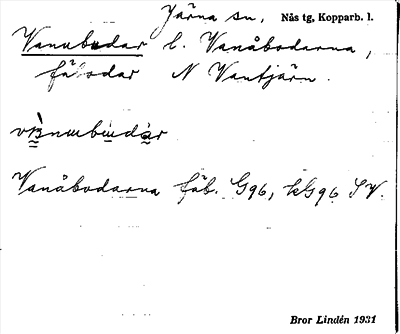 Järna sn. Nås tg, Kopparb. l.
Vanubodar l. Vanåbodarna,
fäbodar N Vantjärn.
Vanåbodarna fäb. G96, kG96 SV.
Bror Lindén 1931